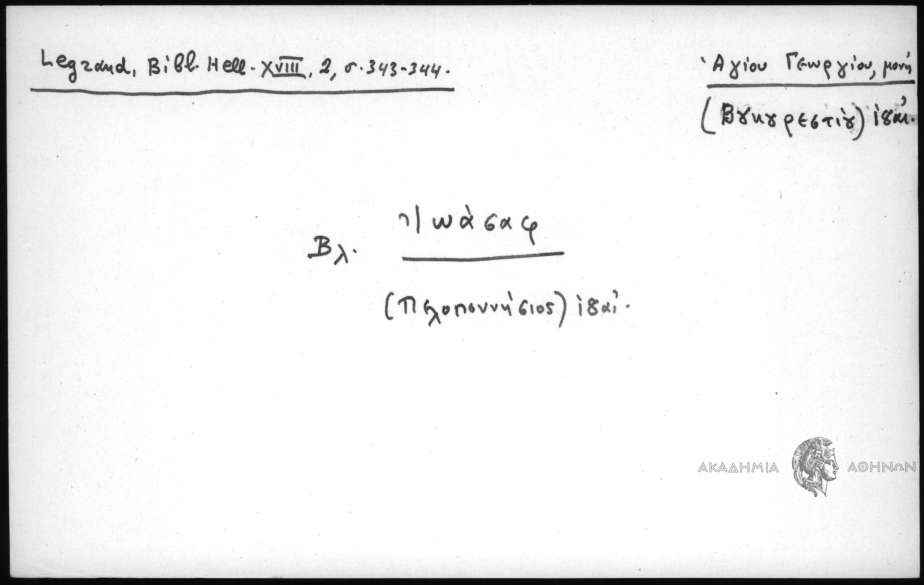 Legrand, Bibl. Hell. XVIII, 2, σ. 343-344.
Ἁγίου Γεωργίου, μονή
(Βȣκȣρεστίȣ) ιηαί.
Βλ. Ἰωάσαφ
(Πελοποννήσιος) ιηαί.
ΑΚΑΔΗΜΙΑ ΑΘΗΝΩΝ